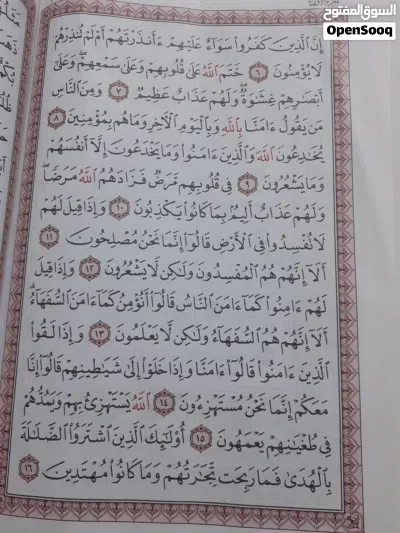 السوق المفتوح
OpenSooq
إِنَّ ٱلَّذِينَ كَفَرُوا۟ سَوَآءٌ عَلَيْهِمْ ءَأَنذَرْتَهُمْ أَمْ لَمْ تُنذِرْهُمْ
لَا يُؤْمِنُونَ ٦ خَتَمَ ٱللَّهُ عَلَىٰ قُلُوبِهِمْ وَعَلَىٰ سَمْعِهِمْ ۖ وَعَلَىٰٓ
أَبْصَٰرِهِمْ غِشَٰوَةٌ ۖ وَلَهُمْ عَذَابٌ عَظِيمٌ ٧ وَمِنَ ٱلنَّاسِ
مَن يَقُولُ ءَامَنَّا بِٱللَّهِ وَبِٱلْيَوْمِ ٱلْءَاخِرِ وَمَا هُم بِمُؤْمِنِينَ ٨
يُخَٰدِعُونَ ٱللَّهَ وَٱلَّذِينَ ءَامَنُوا۟ وَمَا يَخْدَعُونَ إِلَّآ أَنفُسَهُمْ
وَمَا يَشْعُرُونَ ٩ فِى قُلُوبِهِم مَّرَضٌ فَزَادَهُمُ ٱللَّهُ مَرَضًا ۖ
وَلَهُمْ عَذَابٌ أَلِيمٌۢ بِمَا كَانُوا۟ يَكْذِبُونَ ١٠ وَإِذَا قِيلَ لَهُمْ
لَا تُفْسِدُوا۟ فِى ٱلْأَرْضِ قَالُوٓا۟ إِنَّمَا نَحْنُ مُصْلِحُونَ ١١
أَلَآ إِنَّهُمْ هُمُ ٱلْمُفْسِدُونَ وَلَٰكِن لَّا يَشْعُرُونَ ١٢ وَإِذَا قِيلَ
لَهُمْ ءَامِنُوا۟ كَمَآ ءَامَنَ ٱلنَّاسُ قَالُوٓا۟ أَنُؤْمِنُ كَمَآ ءَامَنَ ٱلسُّفَهَآءُ ۗ
أَلَآ إِنَّهُمْ هُمُ ٱلسُّفَهَآءُ وَلَٰكِن لَّا يَعْلَمُونَ ١٣ وَإِذَا لَقُوا۟
ٱلَّذِينَ ءَامَنُوا۟ قَالُوٓا۟ ءَامَنَّا وَإِذَا خَلَوْا۟ إِلَىٰ شَيَٰطِينِهِمْ قَالُوٓا۟ إِنَّا
مَعَكُمْ إِنَّمَا نَحْنُ مُسْتَهْزِءُونَ ١٤ ٱللَّهُ يَسْتَهْزِئُ بِهِمْ وَيَمُدُّهُمْ
فِى طُغْيَٰنِهِمْ يَعْمَهُونَ ١٥ أُو۟لَٰٓئِكَ ٱلَّذِينَ ٱشْتَرَوُا۟ ٱلضَّلَٰلَةَ
بِٱلْهُدَىٰ فَمَا رَبِحَت تِّجَٰرَتُهُمْ وَمَا كَانُوا۟ مُهْتَدِينَ ١٦